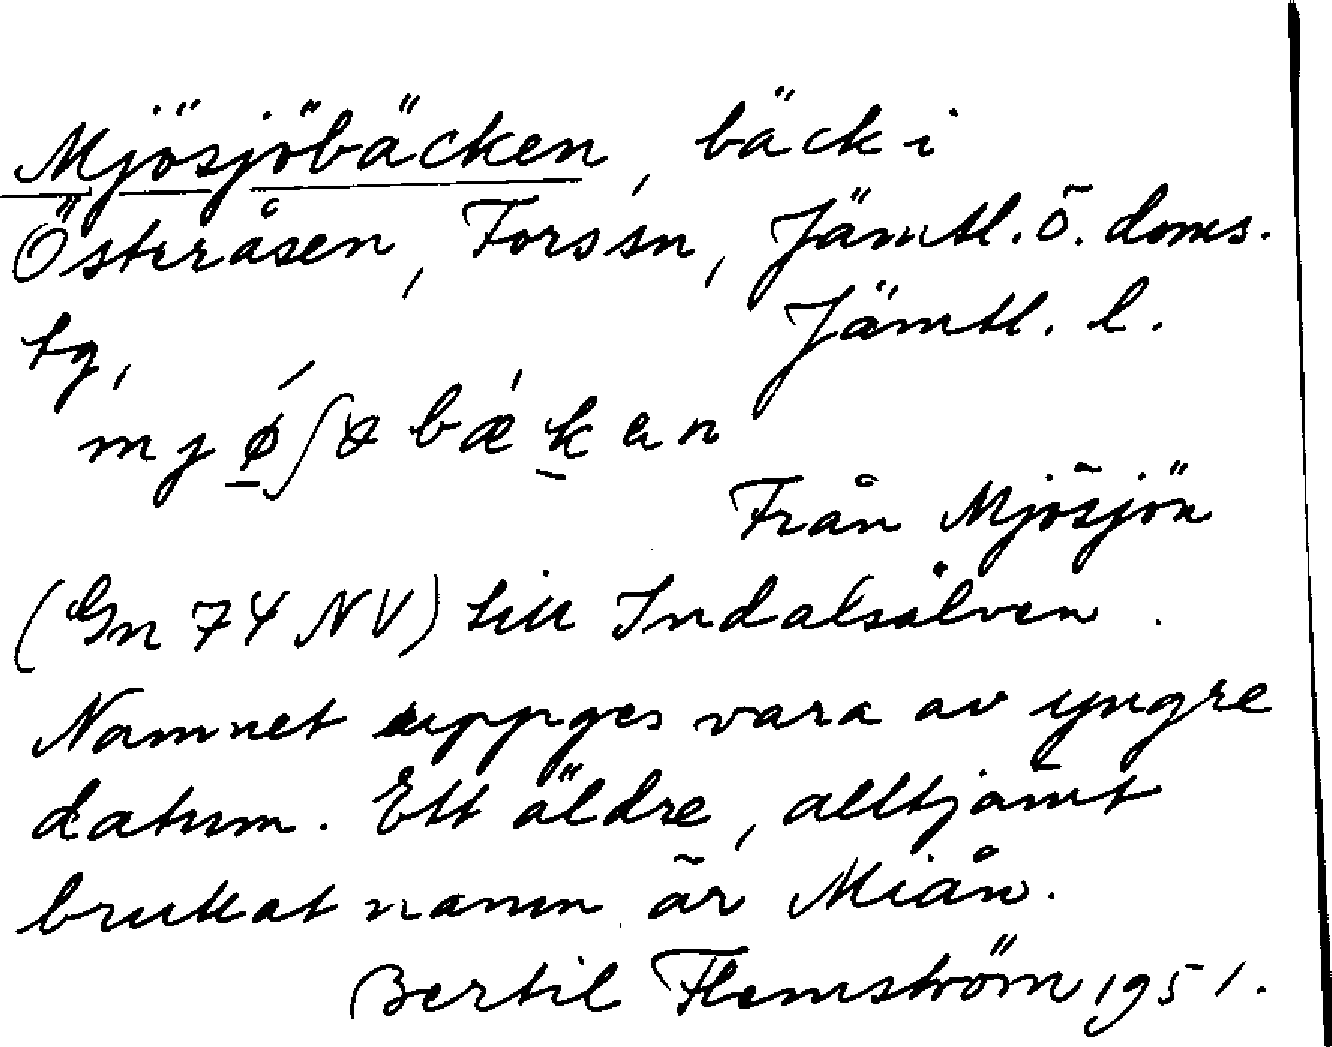 Mjösjöbäcken, bäck i
Österåsen, Forssn, Jämtl. ö. doms.
tg, Jämtl. l.
myǿ̱ʃøbæ̀ḵen
Från Mjösjön
(Gn 74 NV) till Indalsälven.
Namnet uppges vara av yngre
datum. Ett äldre, alltjämt
brukat namn är Miån.
Bertil Flemström 1951.